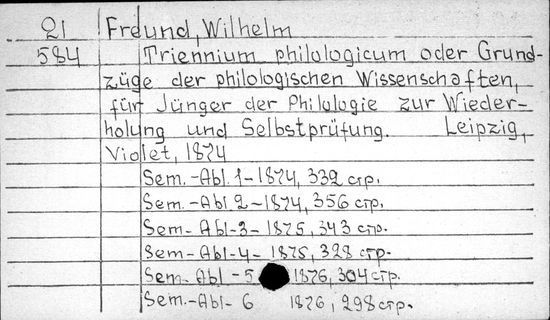 21 Freund, Wilhelm
584 Triennium philologicum oder Grund-
züge der philologischen Wissenschaften,
für Jünger der Philologie zur Wieder-
holung und Selbstprüfung. Leipzig,
Violet, 1874
Sem.-Abl. 1-1874, 332 стр.
Sem.-Abl 2-1874, 356 стр.
Sem-Abl-3-1875, 343 стр.
Sem-Abl-4-1875, 328 стр.
Sem-Abl-5 1876, 304 стр.
Sem.-Abl-6 1876, 298 стр.